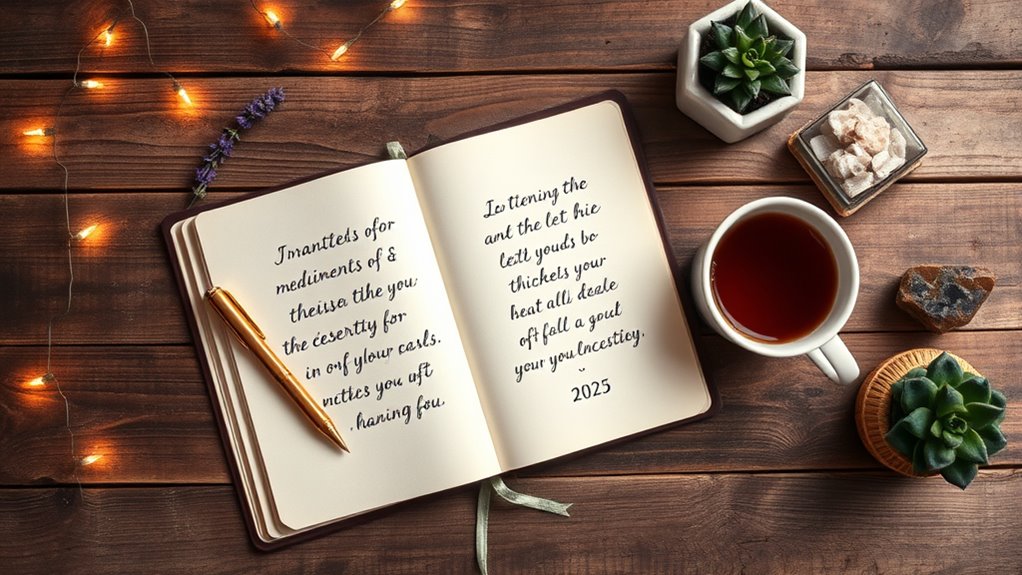 Jmantteds ofor
mediunents of &
theisse tthe you
the ceserrtly for
in onf ylour casls.
mttkes you uft
hanıng fou.
Les ttening the
ant the let hie
lestl youds bo
thickels your
heat alli dzale
oft fall a gout
your you lncestioy.
2025